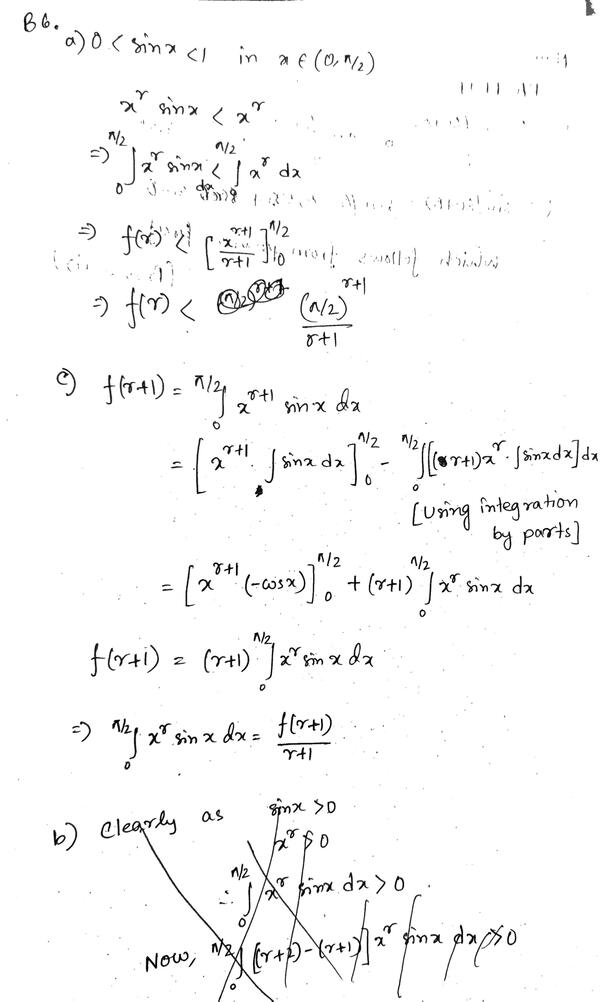 B6.
a) 0 < sinx < 1 in x ∈ (0, π/2)
x^r sinx < x^r
⇒ ∫_0^{π/2} x^r sinx dx < ∫_0^{π/2} x^r dx
⇒ f(r) < [x^{r+1}/(r+1)]_0^{π/2}
⇒ f(r) < (π/2)^{r+1}/(r+1)
c) f(r+1) = ∫_0^{π/2} x^{r+1} sinx dx
= [x^{r+1} . ∫ sinx dx]_0^{π/2} - ∫_0^{π/2} [(r+1)x^r . ∫ sinx dx] dx
[Using integration
by parts]
= [x^{r+1} (-cosx)]_0^{π/2} + (r+1) ∫_0^{π/2} x^r sinx dx
f(r+1) = (r+1) ∫_0^{π/2} x^r sin x dx
⇒ ∫_0^{π/2} x^r sin x dx = f(r+1)/(r+1)
b) Clearly as sinx > 0
x^r > 0
∴ ∫_0^{π/2} x^r sinx dx > 0
Now, ∫_0^{π/2} [(r+2)-(r+1)] x^r sinx dx > 0